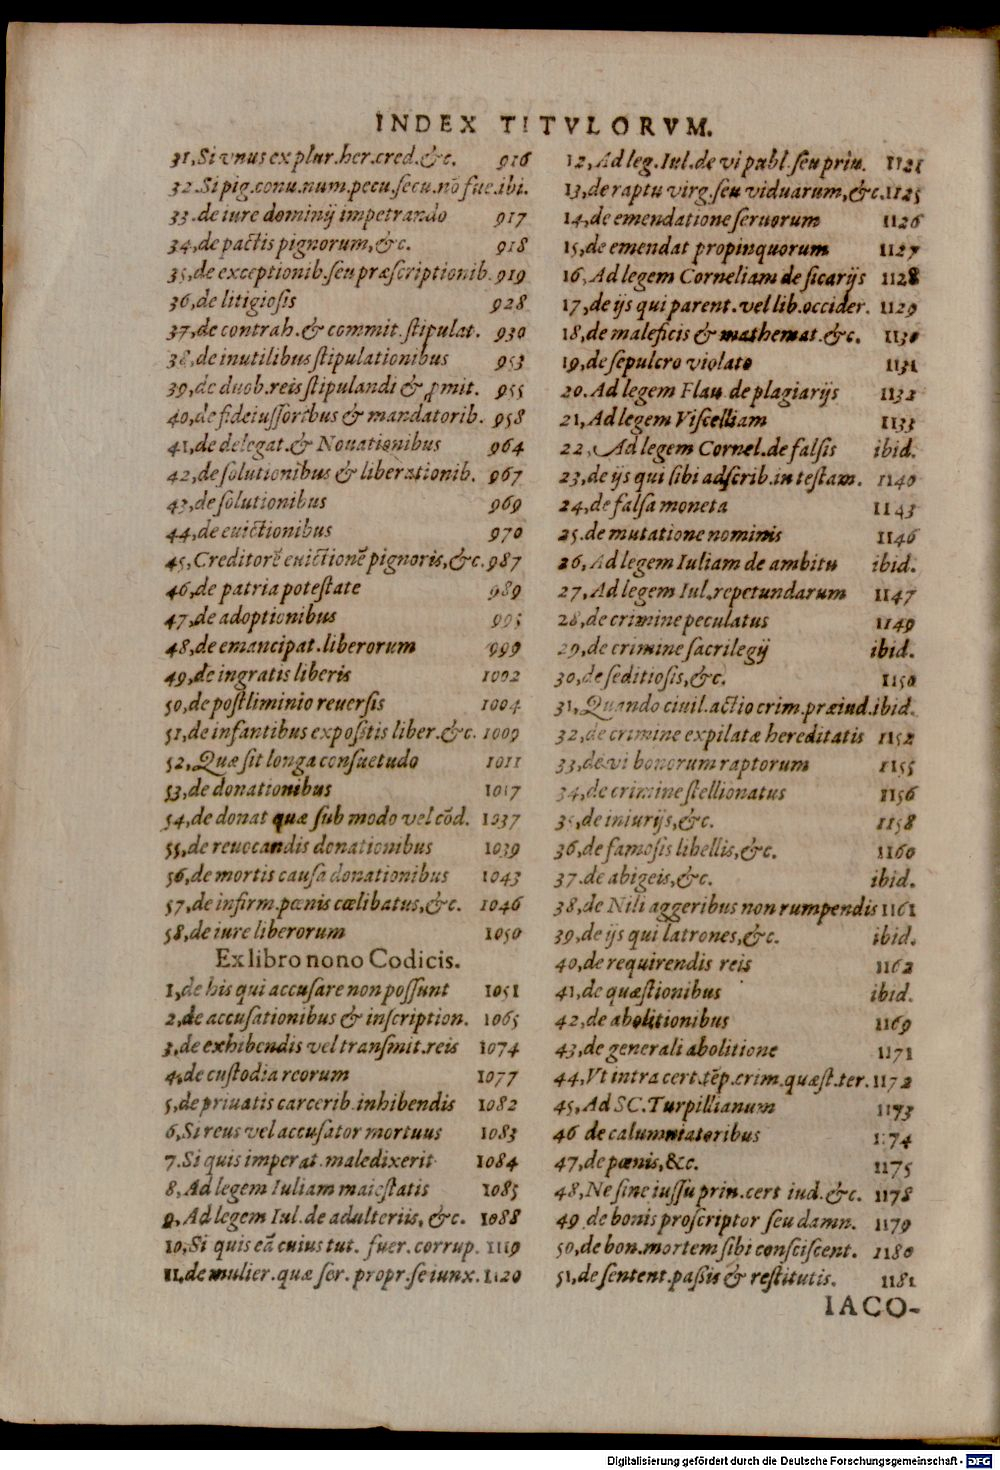 INDEX TITVLORVM.
31, Si vnus ex plur. her. cred. &c. 916
32. Si pig. conu. num. pecu. secu. nō fue. ibi.
33. de iure dominij impetrando 917
34, de pactis pignorum, &c. 918
35, de exceptionib. seu præscriptionib. 919
36, de litigiosis 928
37, de contrah. & commit. stipulat. 930
38, de inutilibus stipulationibus 953
39, de duob. reis stipulandi & ꝓmit. 955
40, de fideiussoribus & mandatorib. 958
41, de delegat. & Nouationibus 964
42, de solutionibus & liberationib. 967
43, de solutionibus 969
44, de euictionibus 970
45, Creditorē euictionē pignoris, &c. 987
46, de patria potestate 989
47, de adoptionibus 995
48, de emancipat. liberorum 999
49, de ingratis liberis 1002
50, de postliminio reuersis 1004
51, de infantibus expositis liber. &c. 1009
52, Quæ sit longa consuetudo 1011
53, de donationibus 1017
54, de donat quæ sub modo vel cōd. 1037
55, de reuocandis donationibus 1039
56, de mortis causa donationibus 1043
57, de infirm. pœnis cœlibatus, &c. 1046
58, de iure liberorum 1050
Ex libro nono Codicis.
1, de his qui accusare non possunt 1051
2, de accusationibus & inscription. 1065
3, de exhibendis vel transmit. reis 1074
4, de custodia reorum 1077
5, de priuatis carcerib. inhibendis 1082
6, Si reus vel accusator mortuus 1083
7. Si quis imperat. maledixerit 1084
8, Ad legem Iuliam maiestatis 1085
9, Ad legem Iul. de adulteriis, &c. 1088
10, Si quis eā cuius tut. fuer. corrup. 1119
11, de mulier. quæ ser. propr. se iunx. 1120
12, Ad leg. Iul. de vi publ. seu priu. 1121
13, de raptu virg. seu viduarum, &c. 1125
14, de emendatione seruorum 1126
15, de emendat propinquorum 1127
16, Ad legem Corneliam de sicarijs 1128
17, de ijs qui parent. vel lib. occider. 1129
18, de maleficis & mathemat. &c. 1130
19, de sepulcro violato 1131
20. Ad legem Flau de plagiarijs 1132
21, Ad legem Viscelliam 1133
22, Ad legem Cornel. de falsis ibid.
23, de ijs qui sibi adscrib. in testam. 1140
24, de falsa moneta 1143
25. de mutatione nominis 1146
26, Ad legem Iuliam de ambitu ibid.
27, Ad legem Iul. repetundarum 1147
28, de crimine peculatus 1149
29, de crimine sacrilegij ibid.
30, de seditiosis, &c. 1150
31, Quando ciuil. actio crim. præiud. ibid.
32, de crimine expilatæ hereditatis 1152
33, de vi bonorum raptorum 1155
34, de crimine stellionatus 1156
35, de iniurijs, &c. 1158
36, de famosis libellis, &c. 1160
37. de abigeis, &c. ibid.
38, de Nili aggeribus non rumpendis 1161
39, de ijs qui latrones, &c. ibid.
40, de requirendis reis 1162
41, de quæstionibus ibid.
42, de abolitionibus 1169
43, de generali abolitione 1171
44, Vt intra cert. tēp. crim. quæst. ter. 1172
45, Ad SC. Turpillianum 1173
46 de calumniatoribus 1174
47, de pœnis, &c. 1175
48, Ne sine iussu prin. cert iud. &c. 1178
49 de bonis proscriptor seu damn. 1179
50, de bon. mortem sibi consciscent. 1180
51, de sentent. passis & restitutis. 1181
IACO-
Digitalisierung gefördert durch die Deutsche Forschungsgemeinschaft - DFG